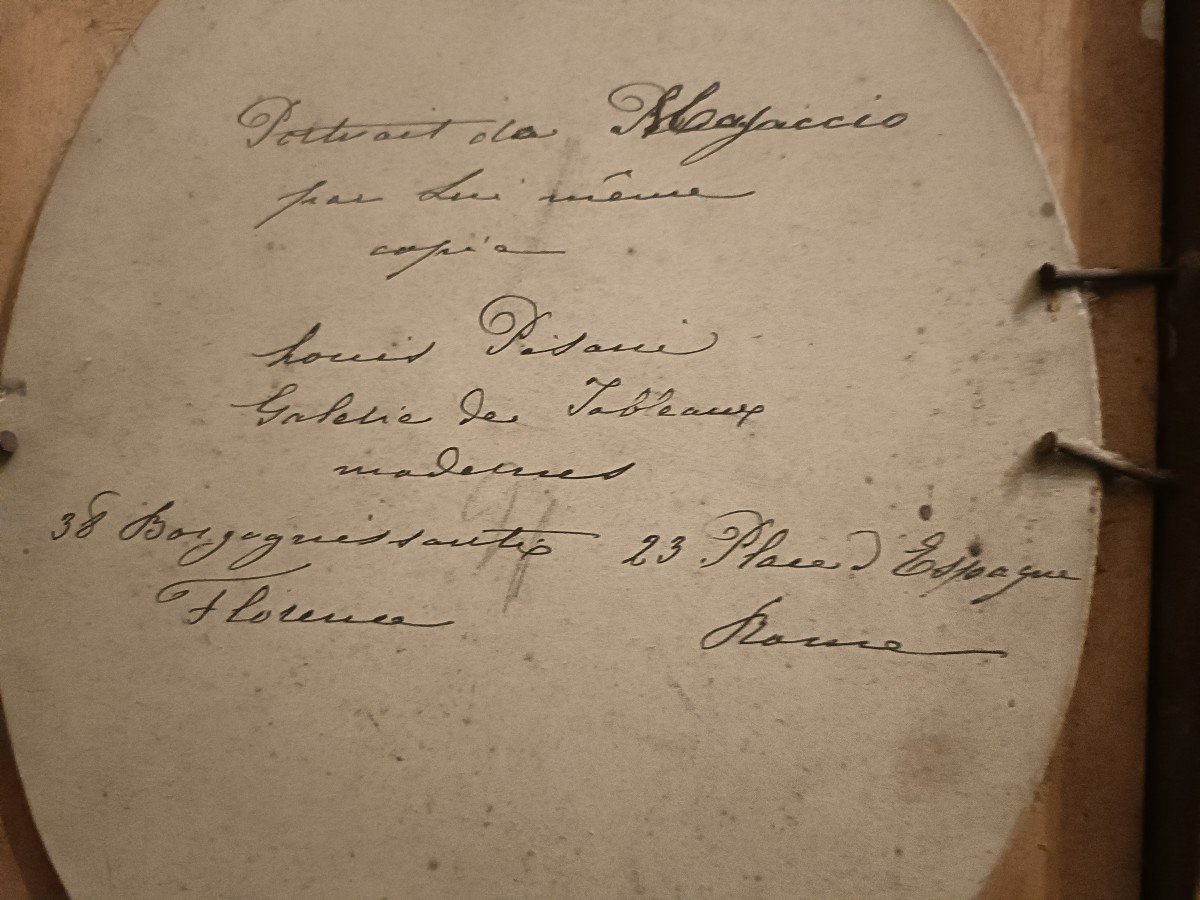 Portrait de Masaccio
par Lui même
copie
Louis Pisani
Galerie de Tableaux
modernes
38 Borgognissantie 23 Place d'Espagne
Florence Rome